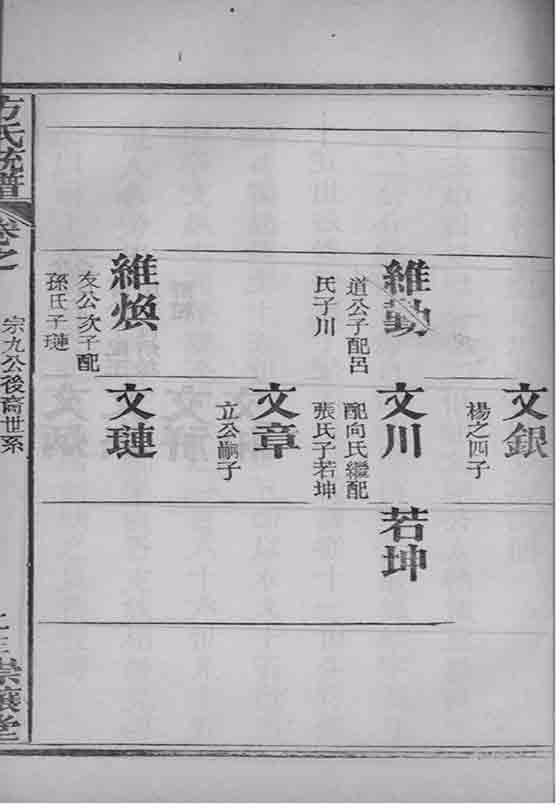 文銀
楊之四子
維勤
道公子配呂
氏子川
文川
配向氏繼配
張氏子若坤
若坤
文章
立公嗣子
維煥
友公次子配
孫氏子璉
文璉
方氏統譜
卷之
宗九公後裔世系
堂